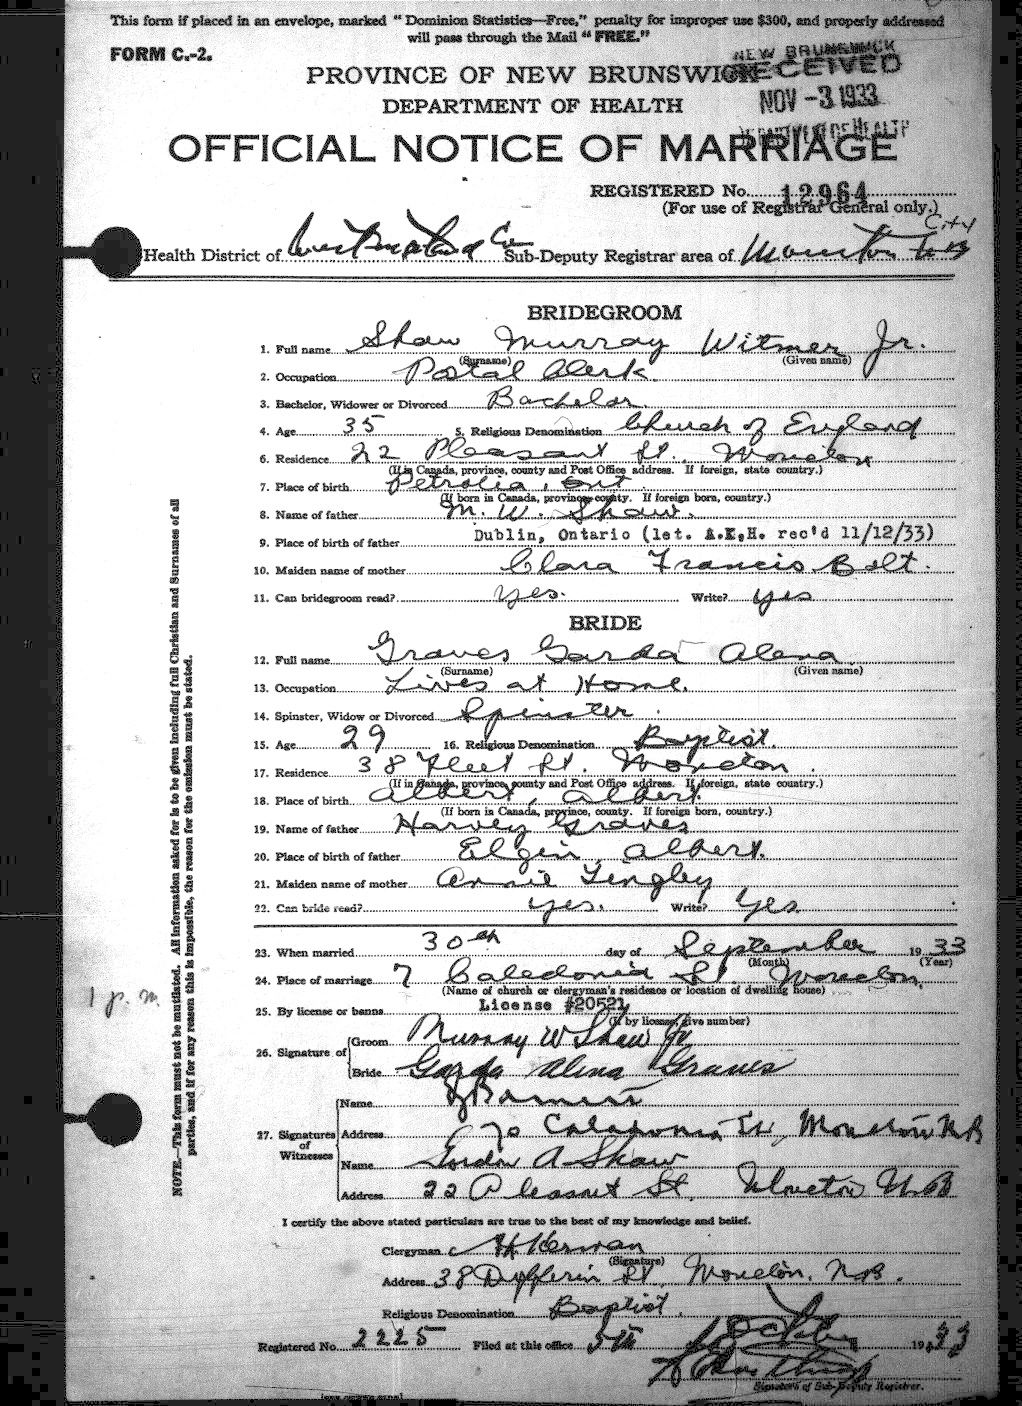 This form if placed in an envelope, marked "Dominion Statistics—Free," penalty for improper use $300, and properly addressed
will pass through the Mail "FREE."
FORM C.-2.
NEW BRUNSWICK
RECEIVED
NOV -3 1933
DEPARTMENT OF HEALTH
PROVINCE OF NEW BRUNSWICK
DEPARTMENT OF HEALTH
OFFICIAL NOTICE OF MARRIAGE
REGISTERED No. 12964
(For use of Registrar General only.)
Health District of Westmorland Co Sub-Deputy Registrar area of Moncton City
BRIDEGROOM
1. Full name Shaw Murray Witmer Jr.
(Surname) (Given name)
2. Occupation Postal Clerk.
3. Bachelor, Widower or Divorced Bachelor
4. Age 35 5. Religious Denomination Church of England
6. Residence 22 Pleasant St., Moncton
(If in Canada, province, county and Post Office address. If foreign, state country.)
7. Place of birth Petrolia, Ont
(If born in Canada, province, county. If foreign born, country.)
8. Name of father M. W. Shaw.
9. Place of birth of father Dublin, Ontario (let. A.K.H. rec'd 11/12/33)
10. Maiden name of mother Clara Francis Bolt.
11. Can bridegroom read? yes. Write? yes
BRIDE
12. Full name Graves Garda Alena
(Surname) (Given name)
13. Occupation Lives at Home.
14. Spinster, Widow or Divorced Spinster.
15. Age 29 16. Religious Denomination Baptist.
17. Residence 38 Fleet St. Moncton.
(If in Canada, province, county and Post Office address. If foreign, state country.)
18. Place of birth Albert, Albert.
(If born in Canada, province, county. If foreign born, country.)
19. Name of father Harvey Graves
20. Place of birth of father Elgin, Albert.
21. Maiden name of mother Annie Tingley
22. Can bride read? yes. Write? Yes.
23. When married 30th day of September 1933
(Month) (Year)
24. Place of marriage 7 Caledonia St. Moncton,
(Name of church or clergyman's residence or location of dwelling house)
1 p. m.
25. By license or banns License #20521
(If by license, give number)
26. Signature of Groom Murray W Shaw Jr
Bride Garda Alena Graves
27. Signatures of Witnesses
Name
Address Caledonia St, Moncton N.B
Name Gordon A Shaw
Address 22 Pleasant St. Moncton N.B
NOTE.—This form must not be mutilated. All information asked for is to be given including full Christian and Surnames of all
parties, and if for any reason this is impossible, the reason for the omission must be stated.
I certify the above stated particulars are true to the best of my knowledge and belief.
Clergyman
(Signature)
Address 38 Dufferin St, Moncton, N.B.
Religious Denomination Baptist.
Registered No. 2225 Filed at this office 5th October 1933
Signature of Sub-Deputy Registrar.